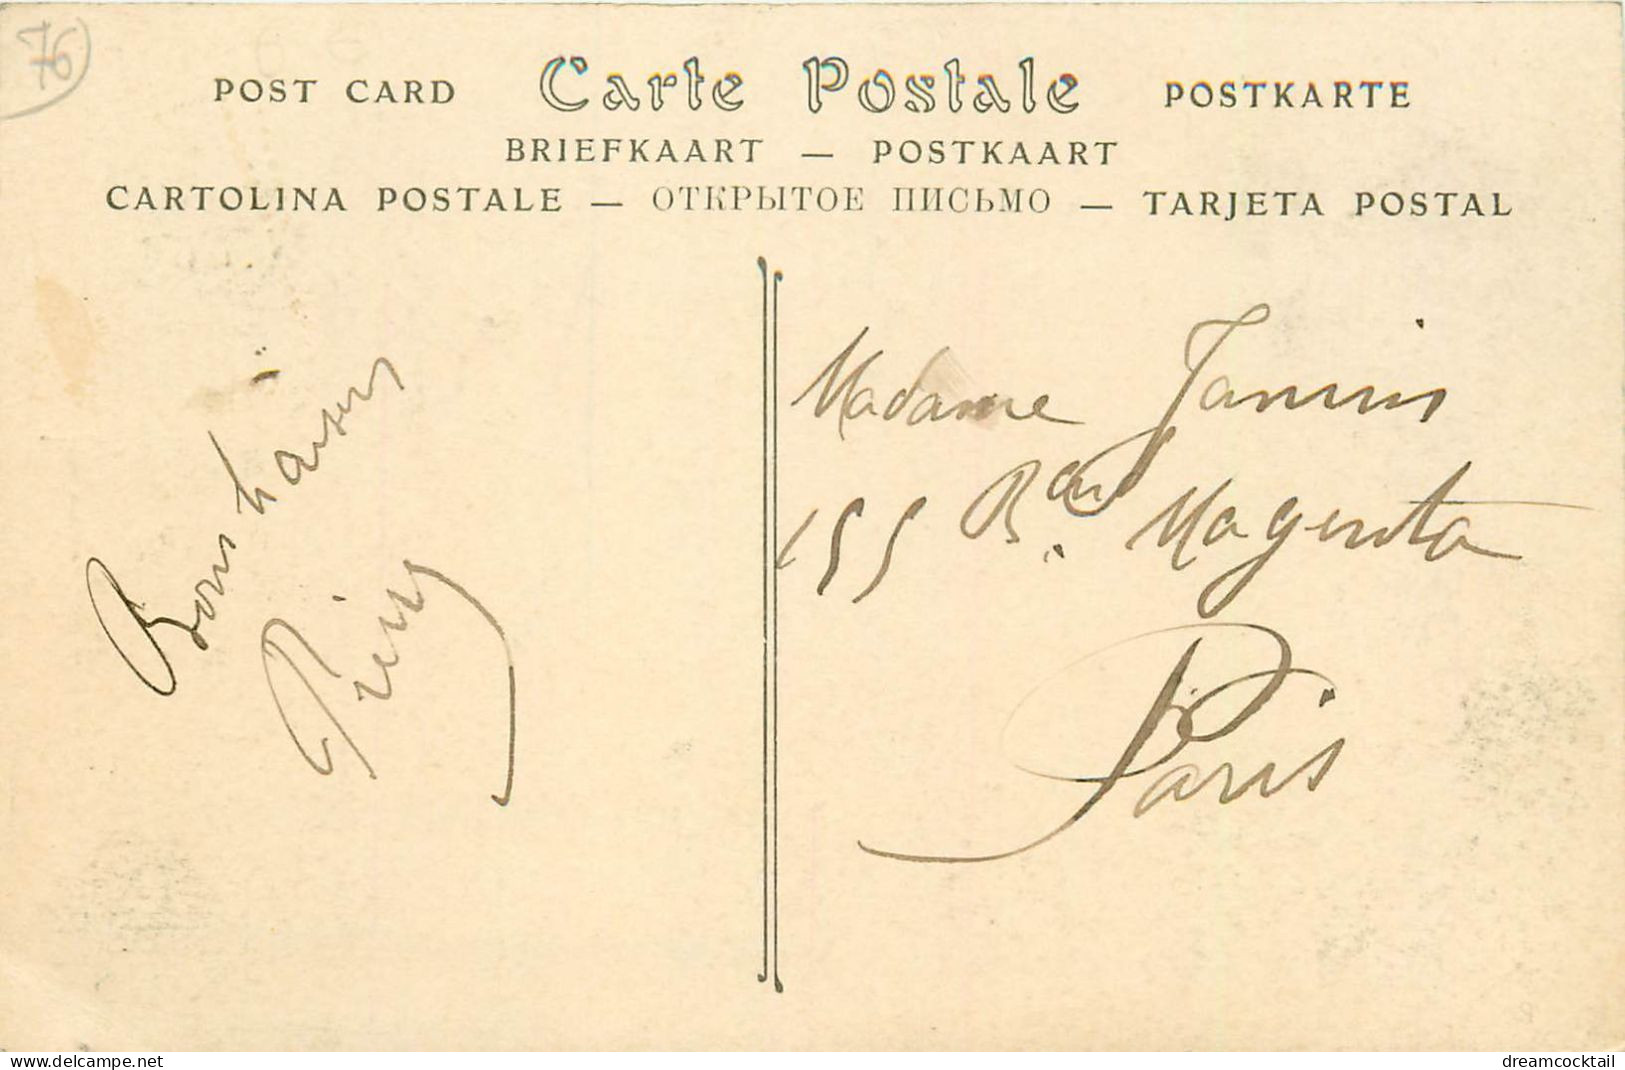 76
POST CARD Carte Postale POSTKARTE
BRIEFKAART — POSTKAART
CARTOLINA POSTALE — ОТКРЫТОЕ ПИСЬМО — TARJETA POSTAL
Bons baisers
Madame Jannin
155 Bard. Magenta
Paris
www.delcampe.net
dreamcocktail